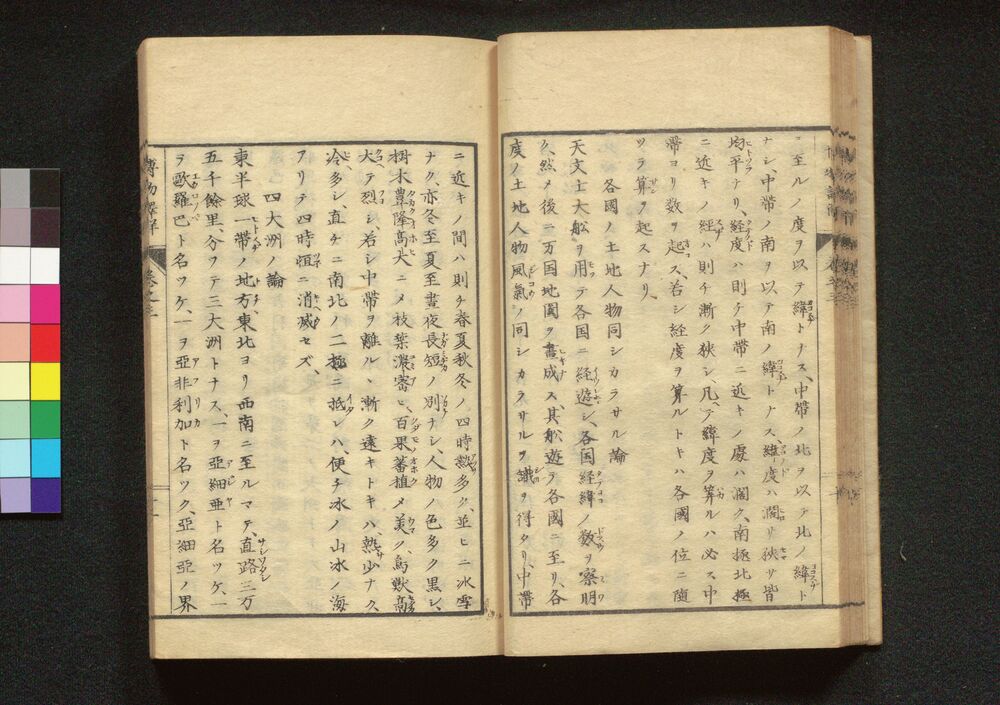 ニ至ルノ度ヲ以テ緯トナス、中帶ノ北ヲ以テ北ノ緯ト
ナシ、中帶ノ南ヲ以テ南ノ緯トナス、緯度ハ闊リ狹サ皆
均平ナリ、経度ハ則チ中帶ニ近キノ處ハ闊ク、南極北極
ニ近キノ経ハ則チ漸ク狹シ、凡テ緯度ヲ算ルハ必ス中
帶ヨリ数ヲ起ス、若シ経度ヲ算ルトキハ各國ノ位ニ隨
ツテ算ヲ起スナリ、
各國ノ土地人物同シカラサル論
天文士大舩ヲ用テ各国ニ経遊シ、各国経緯ノ数ヲ察明
ク、然メ後ニ万国地圖ヲ畫成ス、其舩遊テ各國ニ至リ、各
度ノ土地人物風氣ノ同シカラサルヲ識ヲ得タリ、中帶
ニ近キノ間ハ則チ春夏秋冬ノ四時熱多ク、並ヒニ冰雪
ナク、亦冬至夏至晝夜長短ノ別ナシ、人物ノ色多ク黒シ、
樹木豊隆高大ニメ枝葉濃密ヒ、百果蕃植メ美ク、鳥獣高
大テ烈シ、若シ中帶ヲ離ル丶漸ク遠キトキハ、熱少ナク、
冷多シ、直チニ南北ノ二極ニ抵レハ、便チ冰ノ山冰ノ海
アリテ四時恒ニ消滅セズ、
四大洲ノ論
東半球一帶ノ地方、東北ヨリ西南ニ至ルマテ、直路三万
五千餘里、分ヲテ三大洲トナス、一ヲ亞細亜ト名ツケ、一
ヲ歐羅巴ト名ツケ、一ヲ亞非利加ト名ツク、亞細亞ノ界
博物
巻之三